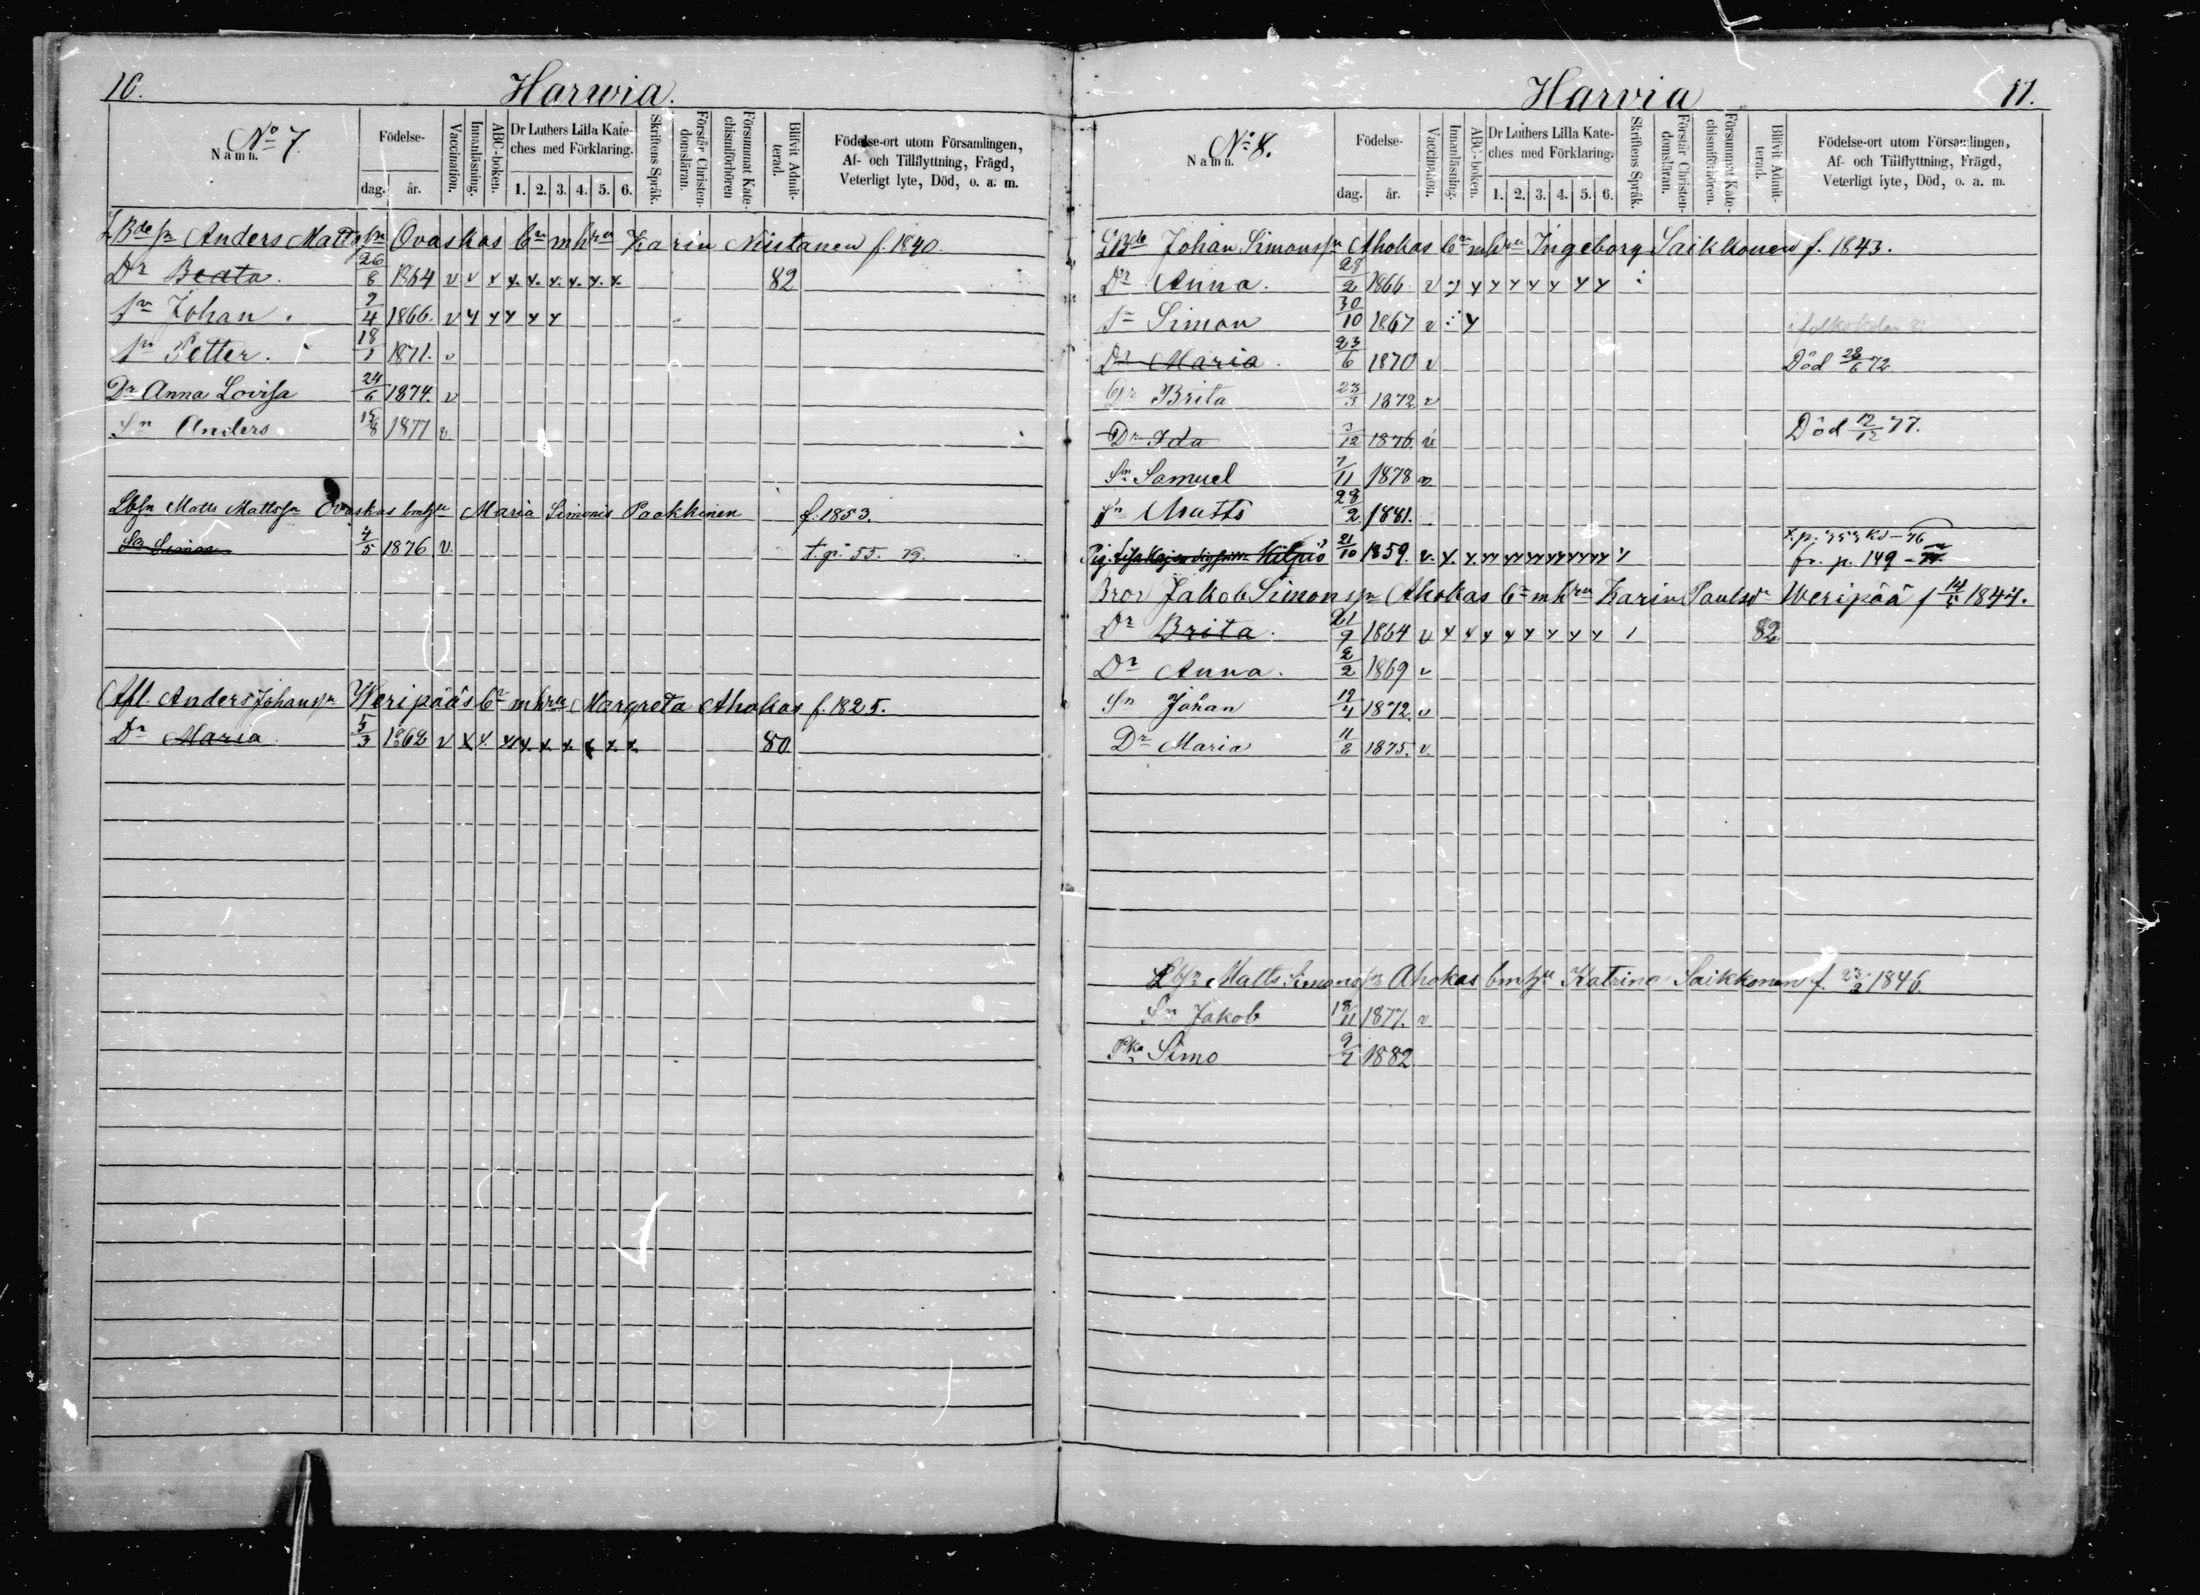 10.
Harwia.
No 7.
Namn.
Födelse-
dag.
år.
Vaccination.
Innanläsning.
ABC-boken.
Dr Luthers Lilla Kate-
ches med Förklaring.
1. 2. 3. 4. 5. 6.
Skriftens Språk.
Förstår Christen-
domsläran.
Försummat Kate-
chismiförhören
Blifvit Admit-
terad.
Födelse-ort utom Församlingen,
Af- och Tillflyttning, Frägd,
Veterligt lyte, Död, o. a. m.
Anders Mattssn Ovaskas bn mhru Karin Niistanen f. 1840.
Dr Beata. 26/8 1864 v v x x. x. x. x. x. x. 82
Sn Johan. 9/4 1866. v x x x x x
Sn Petter. 18/1 1871. v
Dr Anna Lovisa 24/6 1874. v
Sn Anders 1877 v
Matts Mattssn Ovaskas bmhru Maria Simonis Paakkinen f. 1853.
Sn Simon 4/5 1876 v. t. p. 55. 79.
Afl. Anders Johanssn Weripääs bn mhru Margreta Ahokas f. 1825.
Dr Maria 5/3 1862 v x x. x x x. x. x x. x. 80
Harvia
11.
No 8.
Namn.
Födelse-
dag.
år.
Vaccination.
Innanläsning.
ABC-boken.
Dr Luthers Lilla Kate-
ches med Förklaring.
1. 2. 3. 4. 5. 6.
Skriftens Språk.
Förstår Christen-
domsläran.
Försummat Kate-
chismiförhören.
Blifvit Admit-
terad.
Födelse-ort utom Församlingen,
Af- och Tillflyttning, Frägd,
Veterligt lyte, Död, o. a. m.
Johan Simonssn Ahokas bn mhru Ingeborg Saikkonen f. 1843.
Dr Anna. 28/2 1866 v x x x x x x x x
Sn Simon 30/10 1867 v x
Dr Maria 23/6 1870 v Död 28/6 72.
Dr Brita 23/3 1872 v
Dr Ida 3/12 1876. v Död 12/12 77.
Sn Samuel 7/11 1878 v
Sn Matts 28/2 1881.
Pig. Lisa Hilpiö 21/10 1859. v. x. x. x x x x x x x
fr. p. 149
Bror Jakob Simonssn Ahokas bn mhru Karin Paulsdr Weripää f 1844.
Dr Brita. 21/9 1864 v x x x x x x x x 1 82
Dr Anna. 2/2 1869 v
Sn Johan 12/4 1872. v
Dr Maria 11/8 1875. v.
Matts Simonssn Ahokas bmhru Katrina Saikkonen f. 23/2 1846.
Sn Jakob 18/11 1877. v
Pka Simo 1882